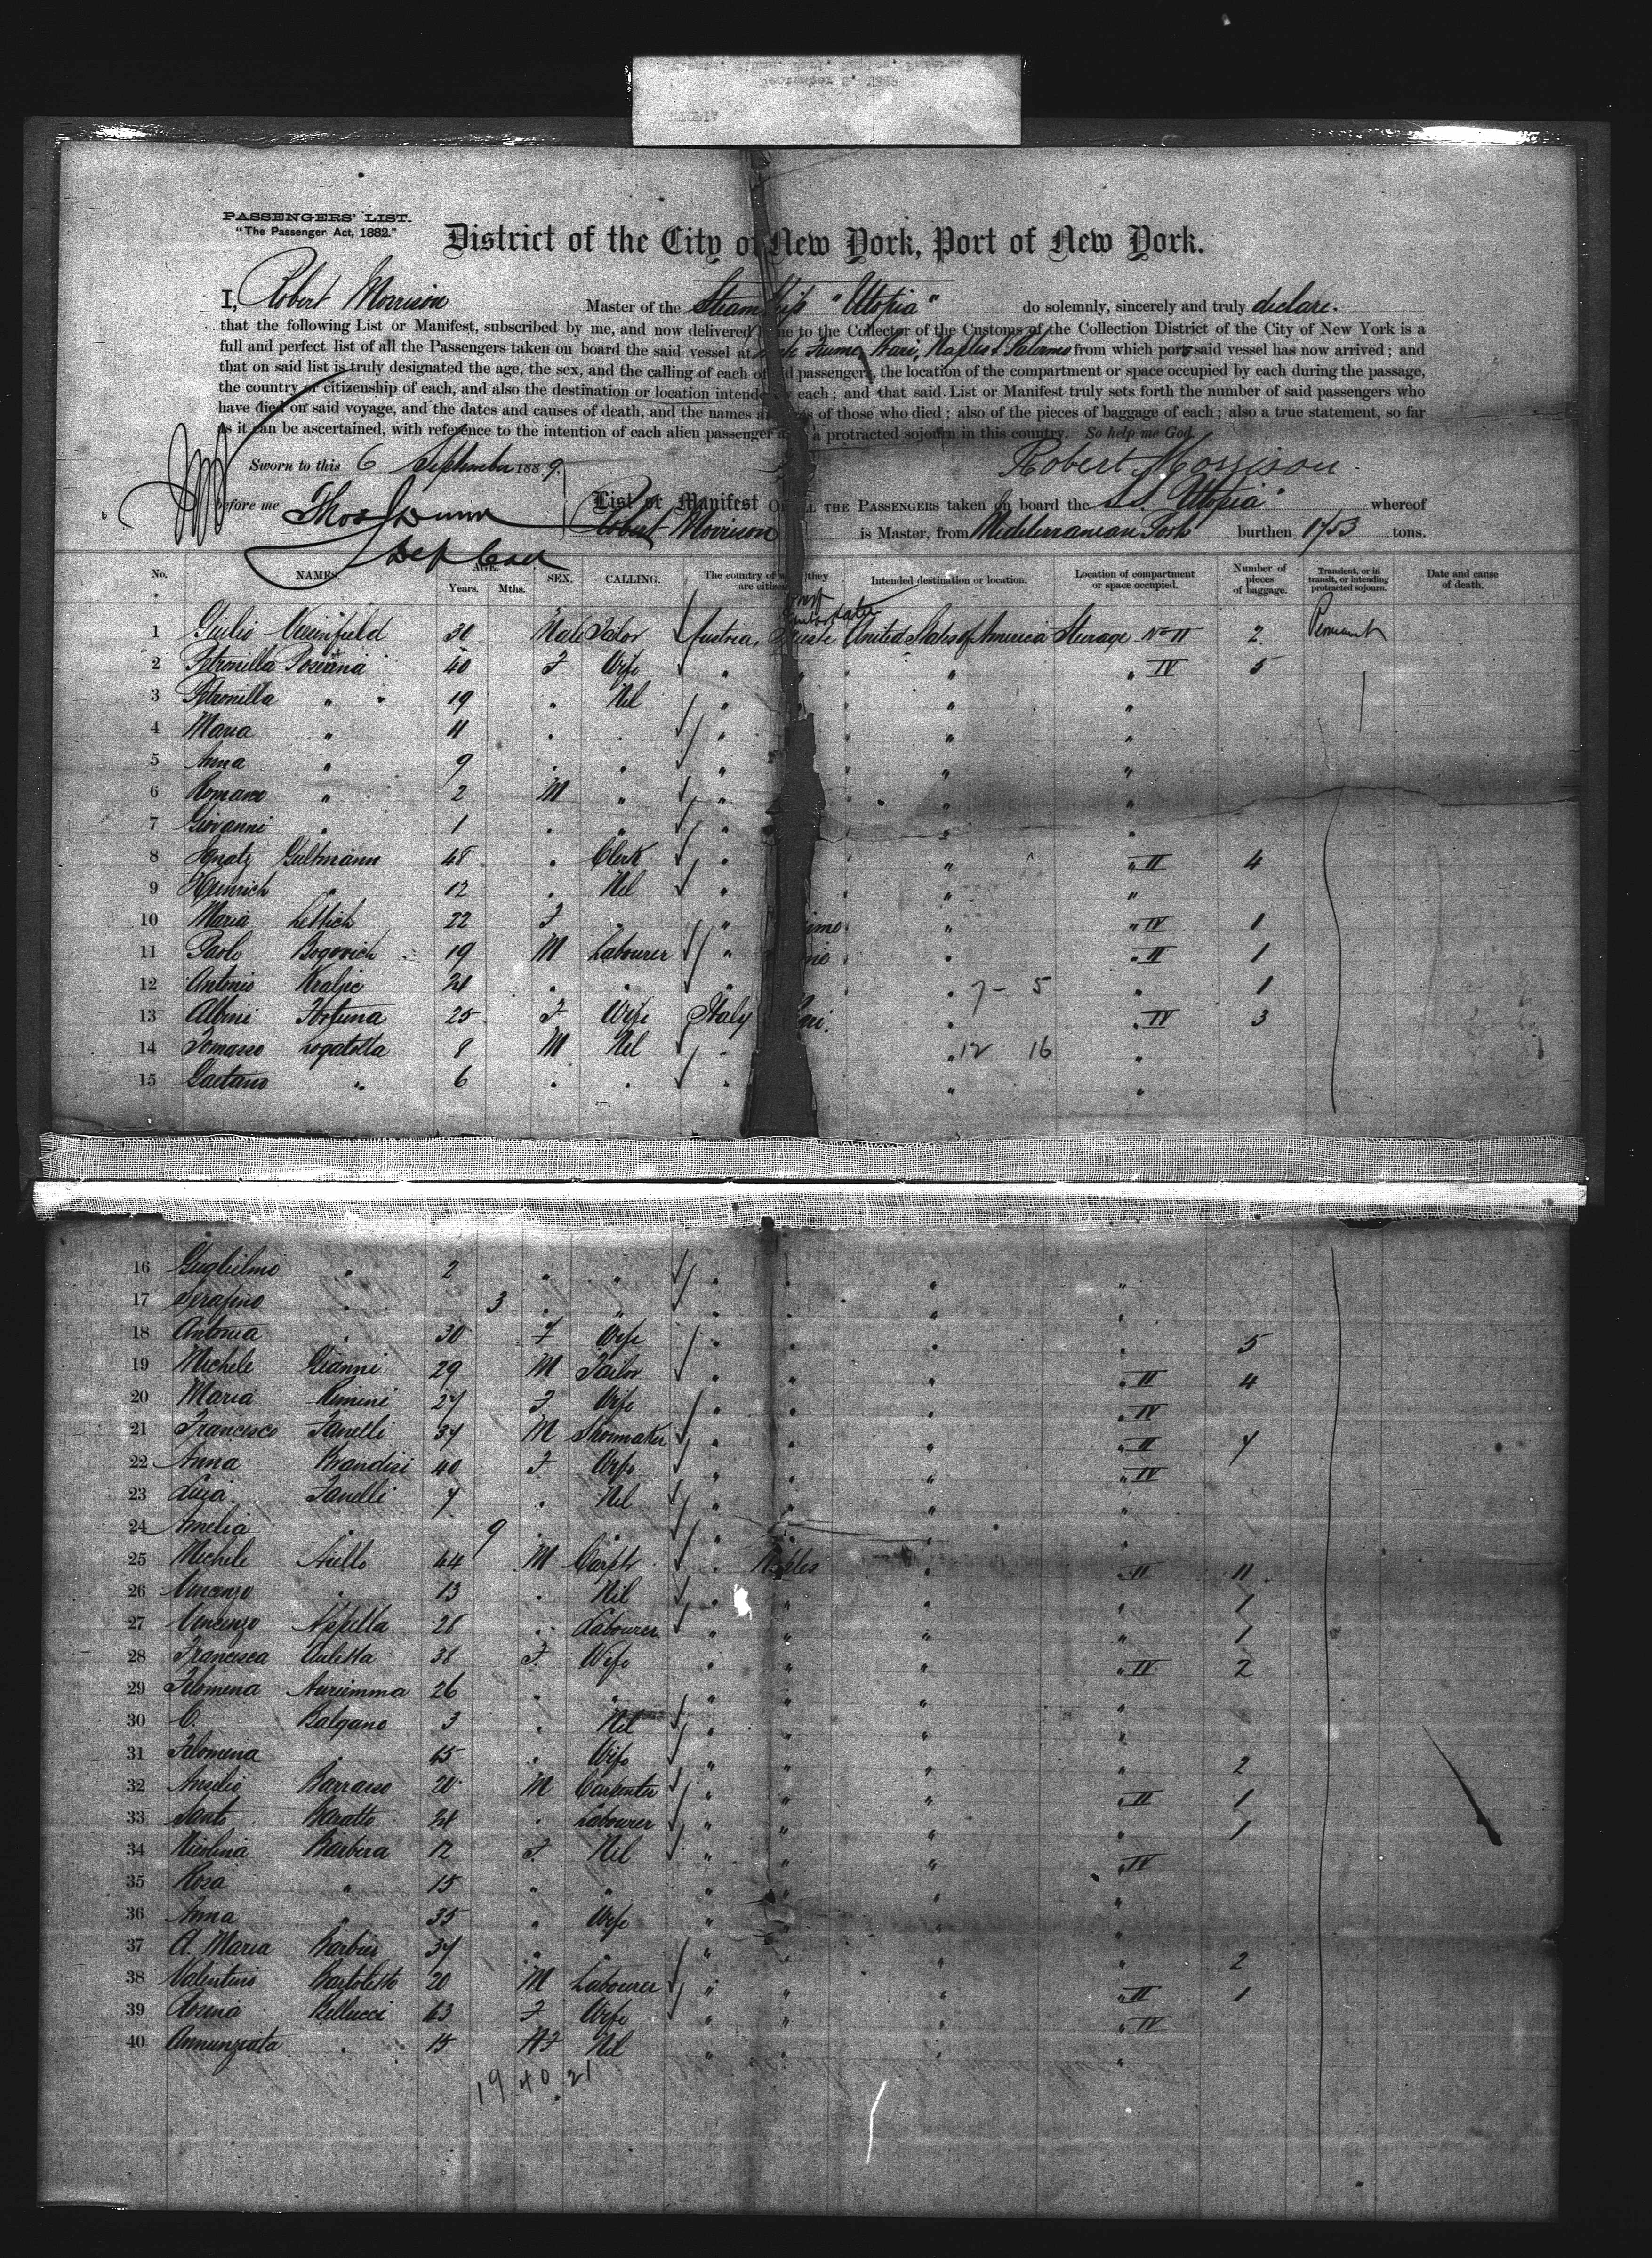 PASSENGERS' LIST.
"The Passenger Act, 1882."
District of the City of New York, Port of New York.
I, Robert Morrison Master of the Steam Ship "Utopia" do solemnly, sincerely and truly declare.
that the following List or Manifest, subscribed by me, and now delivered me to the Collector of the Customs of the Collection District of the City of New York is a
full and perfect list of all the Passengers taken on board the said vessel at Fiume, Bari, Naples & Palermo from which ports said vessel has now arrived; and
that on said list is truly designated the age, the sex, and the calling of each of said passengers, the location of the compartment or space occupied by each during the passage,
the country of citizenship of each, and also the destination or location intended by each; and that said List or Manifest truly sets forth the number of said passengers who
have died on said voyage, and the dates and causes of death, and the names and ages of those who died; also of the pieces of baggage of each; also a true statement, so far
as it can be ascertained, with reference to the intention of each alien passenger a protracted sojourn in this country. So help me God.
Sworn to this 6 September 1889. Robert Morrison
before me Thos Dunn
List or Manifest OF ALL THE PASSENGERS taken on board the S.S. "Utopia" whereof
Robert Morrison is Master, from Mediterranean Ports burthen 1753 tons.
No. NAMES. AGE. Years. Mths. SEX. CALLING. The country of which they are citizens. Intended destination or location. Location of compartment or space occupied. Number of pieces of baggage. Transient, or in transit, or intending protracted sojourn. Date and cause of death.
1 Giulio 30 Male Tailor Austria, United States of America Steerage No II 2 Permanent
2 Petronilla 40 F Wife " " " IV 5
3 Petronilla " 19 " Nil " " "
4 Maria " 11 " " " " "
5 Anna " 9 " " " " "
6 Romano " 2 M " " " "
7 Giovanni " 1 " " " " "
8 Ignatz Gultmann 48 " Clerk " " " II 4
9 Heinrich " 12 " Nil " " "
10 Maria Lettich 22 F " " " " IV 1
11 Paolo Bogovich 19 M Labourer " " " II 1
12 Antonio Kraljic 24 " " " " 7 - 5 " 1
13 Albini Fortuna 25 F Wife Italy Bari. " " IV 3
14 Tomasso Logatolla 8 M Nil " " 12 16 "
15 Gaetano " 6 " " " " "
16 Guglielmo " 2 " " " " " "
17 Serafino " 3 " " " " " "
18 Antonia " 30 F Wife " " " " 5
19 Michele Gianni 29 M Tailor " " " " II 4
20 Maria Rimini 27 F Wife " " " " IV
21 Francesco Fanelli 37 M Shoemaker " " " " II 7
22 Anna Brandisi 40 F Wife " " " " IV
23 Luija Fanelli 7 " Nil " " " "
24 Amelia " 9 " " " " " "
25 Michele Aiello 44 M Carptr " Naples " " II 11
26 Vincenzo " 13 " Nil " " " " 1
27 Vincenzo 28 " Labourer " " " " 1
28 Francesca Auletta 38 F Wife " " " " IV 2
29 Filomena Auriemma 26 " " " " " "
30 C. Balgano 3 " Nil " " " "
31 Filomena " 65 " Wife " " " " 2
32 Barrasso 20 M Carpenter " " " " II 1
33 Santo Baratto 24 " Labourer " " " " 1
34 Nicolina Barbera 12 F Nil " " " " IV
35 Rosa " 15 " " " " " "
36 Anna " 35 " Wife " " " "
37 A. Maria Barbieri 37 " " " " " " 2
38 Valentino Bartoletto 20 M Labourer " " " " II 1
39 Bellucci 63 F Wife " " " " IV
40 Annunziata " 15 F Nil " " " "
19 40 21